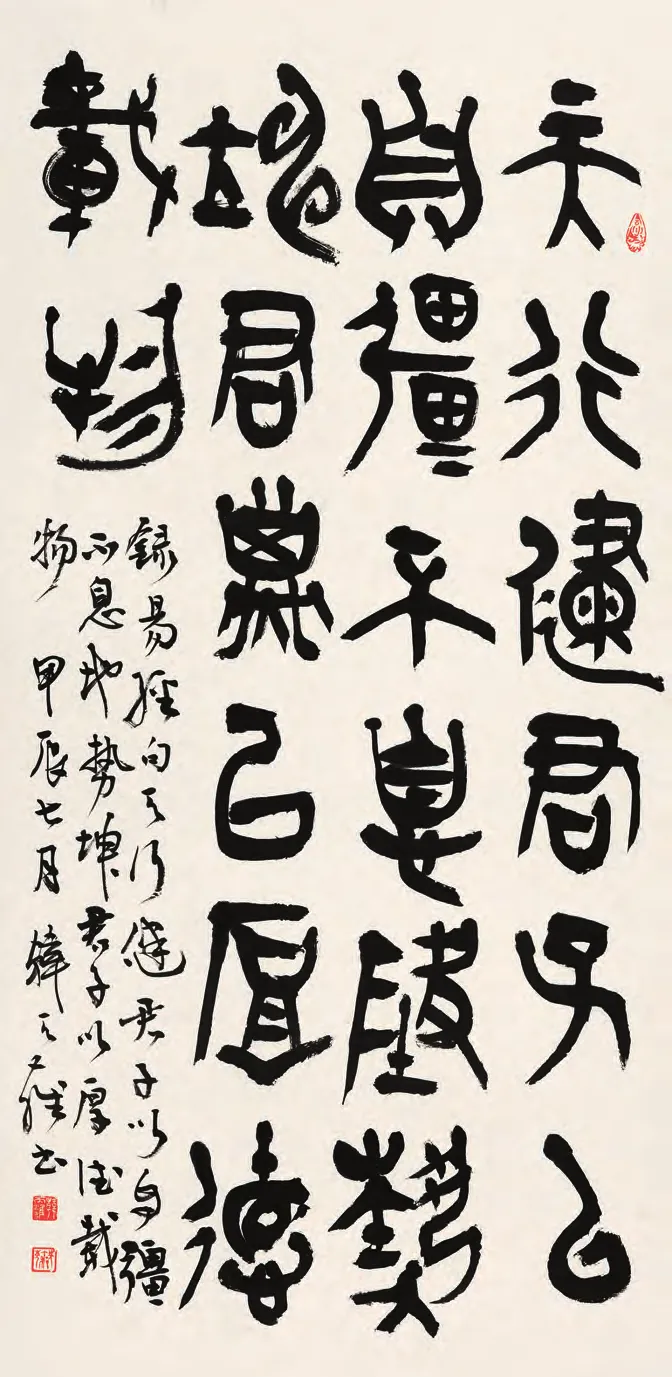 天行健君子以
自彊不息地勢
坤君子以厚德
載物
録易經句天行健君子以自彊
不息地勢坤君子以厚德載
物 甲辰七月 韓天雍書